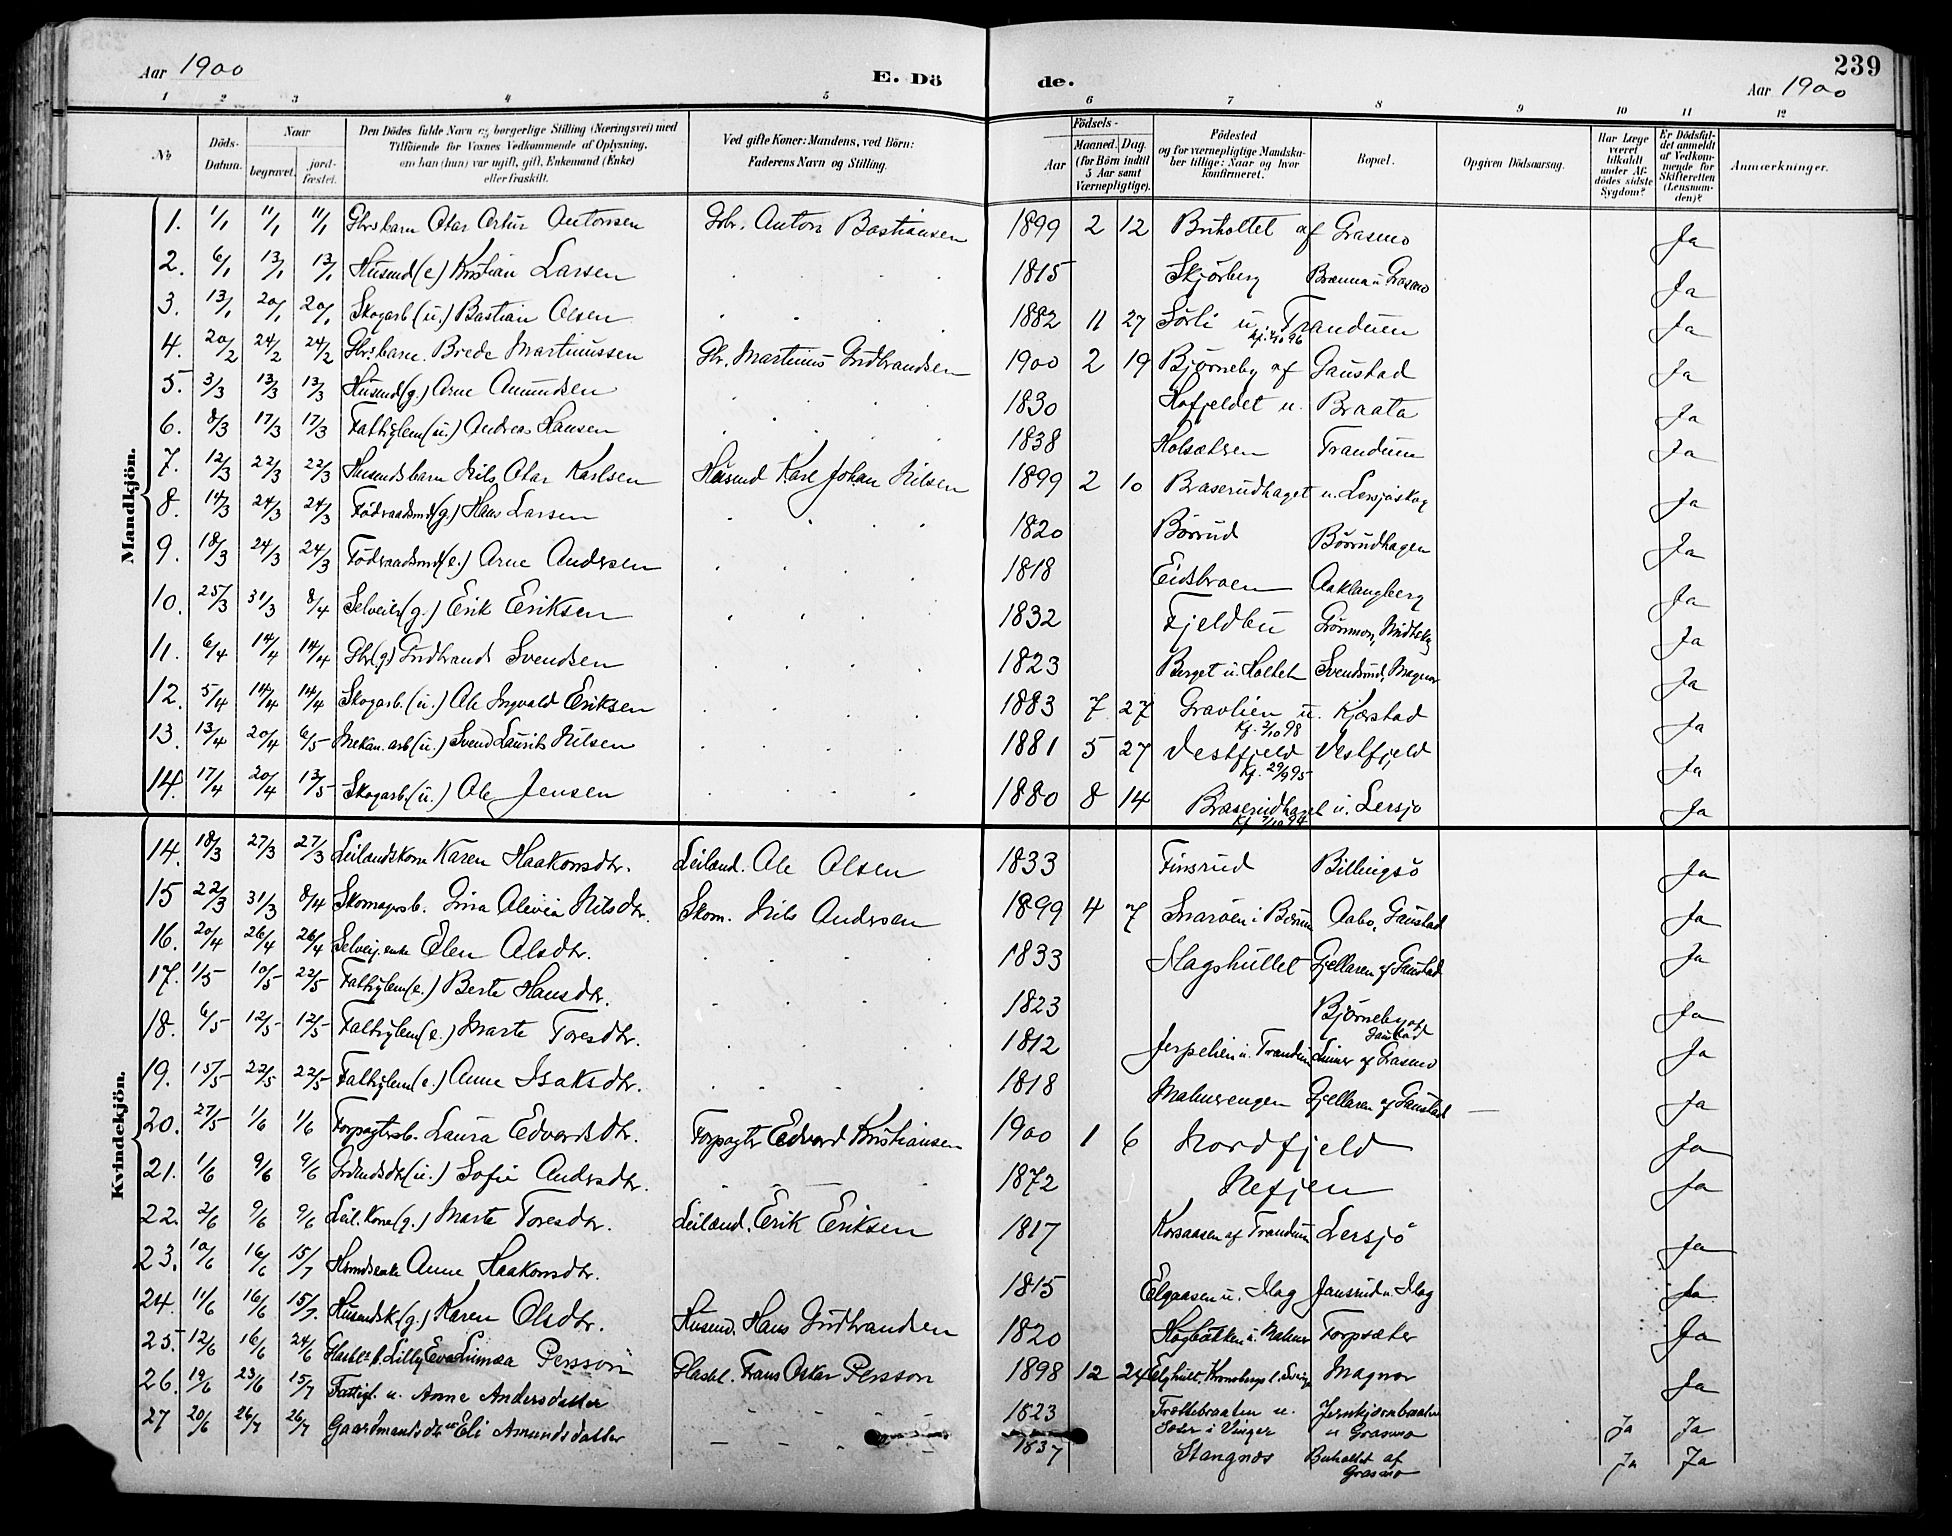 239
Aar 1900
E. Dö
de.
Aar 1900
1 2 3 4 5 6 7 8 9 10 11 12
No.
Döds-Datum.
Naar
begravet.
jord-fæstet.
Den Dödes fulde Navn og borgerlige Stilling (Næringsvei) med
Tilföiende for Voxnes Vedkommende af Oplysning,
om han (hun) var ugift, gift, Enkemand (Enke)
eller fraskilt.
Ved gifte Koner: Mandens, ved Börn:
Faderens Navn og Stilling.
Födsels-
Aar
Maaned. Dag.
(for Börn indtil
5 Aar samt
Værnepligtige).
Födested
og for værnepligtige Mandska-
ber tillige: Naar og hvor
konfirmeret.
Bopæl.
Opgiven Dödsaarsag.
Har Læge
været
tilkaldt
under Af-
dödes sidste
Sygdom?
Er Dödsfal-
det anmeldt
af Vedkom-
mende for
Skifteretten
(Lensman-
den)?
Anmærkninger.
Mandkjön.
1. 1/1 11/1 11/1 Gbrsbarn Otar Artur Antonsen Gbr. Anton Bastiansen 1899 2 12 Buholtet af Grasmo Ja
2. 6/1 13/1 13/1 Husmd (e) Kristian Larsen 1815 Skjörberg Grasmo Ja
3. 13/1 20/1 20/1 Skogarb (u.) Bastian Olsen 1882 11 27 Sörli u Trandum Ja
4. 20/2 24/2 24/2 Gbrsbarn. Brede Martinussen Gbr. Martinus Gudbrandsen 1900 2 19 Björneby af Gaustad Ja
5. 3/3 13/3 13/3 Husmd (g.) Arne Amundsen 1830 Hofjeldet u. Braata Ja
6. 8/3 17/3 17/3 Fattiglem (u.) Andreas Hansen 1838 Holsætren Trandum Ja
7. 12/3 22/3 22/3 Husmdsbarn Nils Otar Karlsen Husmd Karl Johan Nilsen 1899 2 10 Braserudhaget u. Lersjöskog Ja
8. 14/3 24/3 24/3 Födraadsmd (g.) Hans Larsen 1820 Börrud Börrudhagen Ja
9. 18/3 24/3 24/3 Födraadsmd (e.) Arne Andersen 1818 Eidsbraen Aaklangberg Ja
10. 25/3 31/3 8/4 Selveier (g.) Erik Eriksen 1832 Fjeldbu Ja
11. 6/4 14/4 14/4 Gbr (g) Gudbrand Svendsen 1823 Berget u. Holtet Svendsrud, Magnor Ja
12. 5/4 14/4 14/4 Skogarb. (u.) Ole Ingvald Eriksen 1883 7 27 Gravlien u. Kjærstad Kf. 2/10 98 Ja
13. 13/4 20/4 6/5 Mekan. arb (u.) Svend Laurits Nilsen 1881 5 27 Vestfjeld Vestfjeld Kf. 29/9 95 Ja
14. 17/4 20/4 13/5 Skogarb. (u.) Ole Jensen 1880 8 14 Braserudhaget u. Lersjö Ja
Kvindekjön.
14. 18/3 27/3 27/3 Leilandskone Karen Haakonsdtr. Leiland. Ole Olsen 1833 Finsrud Billingsö Ja
15 22/3 31/3 8/4 Skomagrsb. Gina Olivia Nilsdtr. Skom. Nils Andersen 1899 4 7 Snaröen i Bærum Aabo, Gaustad Ja
16. 20/4 26/4 26/4 Selveij. enke Elen Olsdtr. 1833 Slagshullet Gjellaren af Gaustad Ja
17. 1/5 10/5 22/5 Fattiglem (e.) Berte Hansdtr. 1823 Björneby af Gaustad Ja
18. 6/5 12/5 12/5 Fattiglem (e.) Marte Toresdtr. 1812 Jerpelien u. Trandum Linner af Grasmo Ja
19. 15/5 22/5 22/5 Fattiglem (e.) Anne Isaksdtr. 1818 Malmerengen Gjellaren af Gaustad Ja
20. 27/5 1/6 1/6 Forpagtersb. Laura Edvardsdtr. Forpagter Edvard Kristiansen 1900 1 6 Nordfjeld Ja
21. 1/6 9/6 9/6 Grdmdsdtr (u.) Sofie Andrsdtr. 1872 Nefjen Ja
22. 2/6 9/6 9/6 Leil. Kone (g.) Marte Toresdtr. Leiland. Erik Eriksen 1817 Korsaasen af Trandum Lersjö Ja
23. 10/6 16/6 15/7 Husmdsenke Anne Haakonsdtr. 1815 Elgaasen u. Mag Jansrud u. Mag Ja
24. 11/6 16/6 15/7. Husmdsk. (g.) Karen Olsdtr. Husmd. Hans Gudbrandsen 1820 Högbakken u. Malmer Forpsæter Ja
25. 12/6 16/6 24/6 Glasbl. b. Lilly Eva Linnea Persson Glasbl. Frans Oskar Persson 1898 12 24 Elghult, Kronobergs l. Sverige Magnor Ja
26. 19/6 23/6 15/7 Fattigl. u. Anne Andersdatter 1823 Trættebraaten u. Soter i Vinger Jernkjernbraaten u Grasmo Ja Ja
27 20/6 26/7 26/7 Gaardmandsdtr u Eli Amundsdatter 1837 Stangnes Buholtet af Grasmo Ja Ja